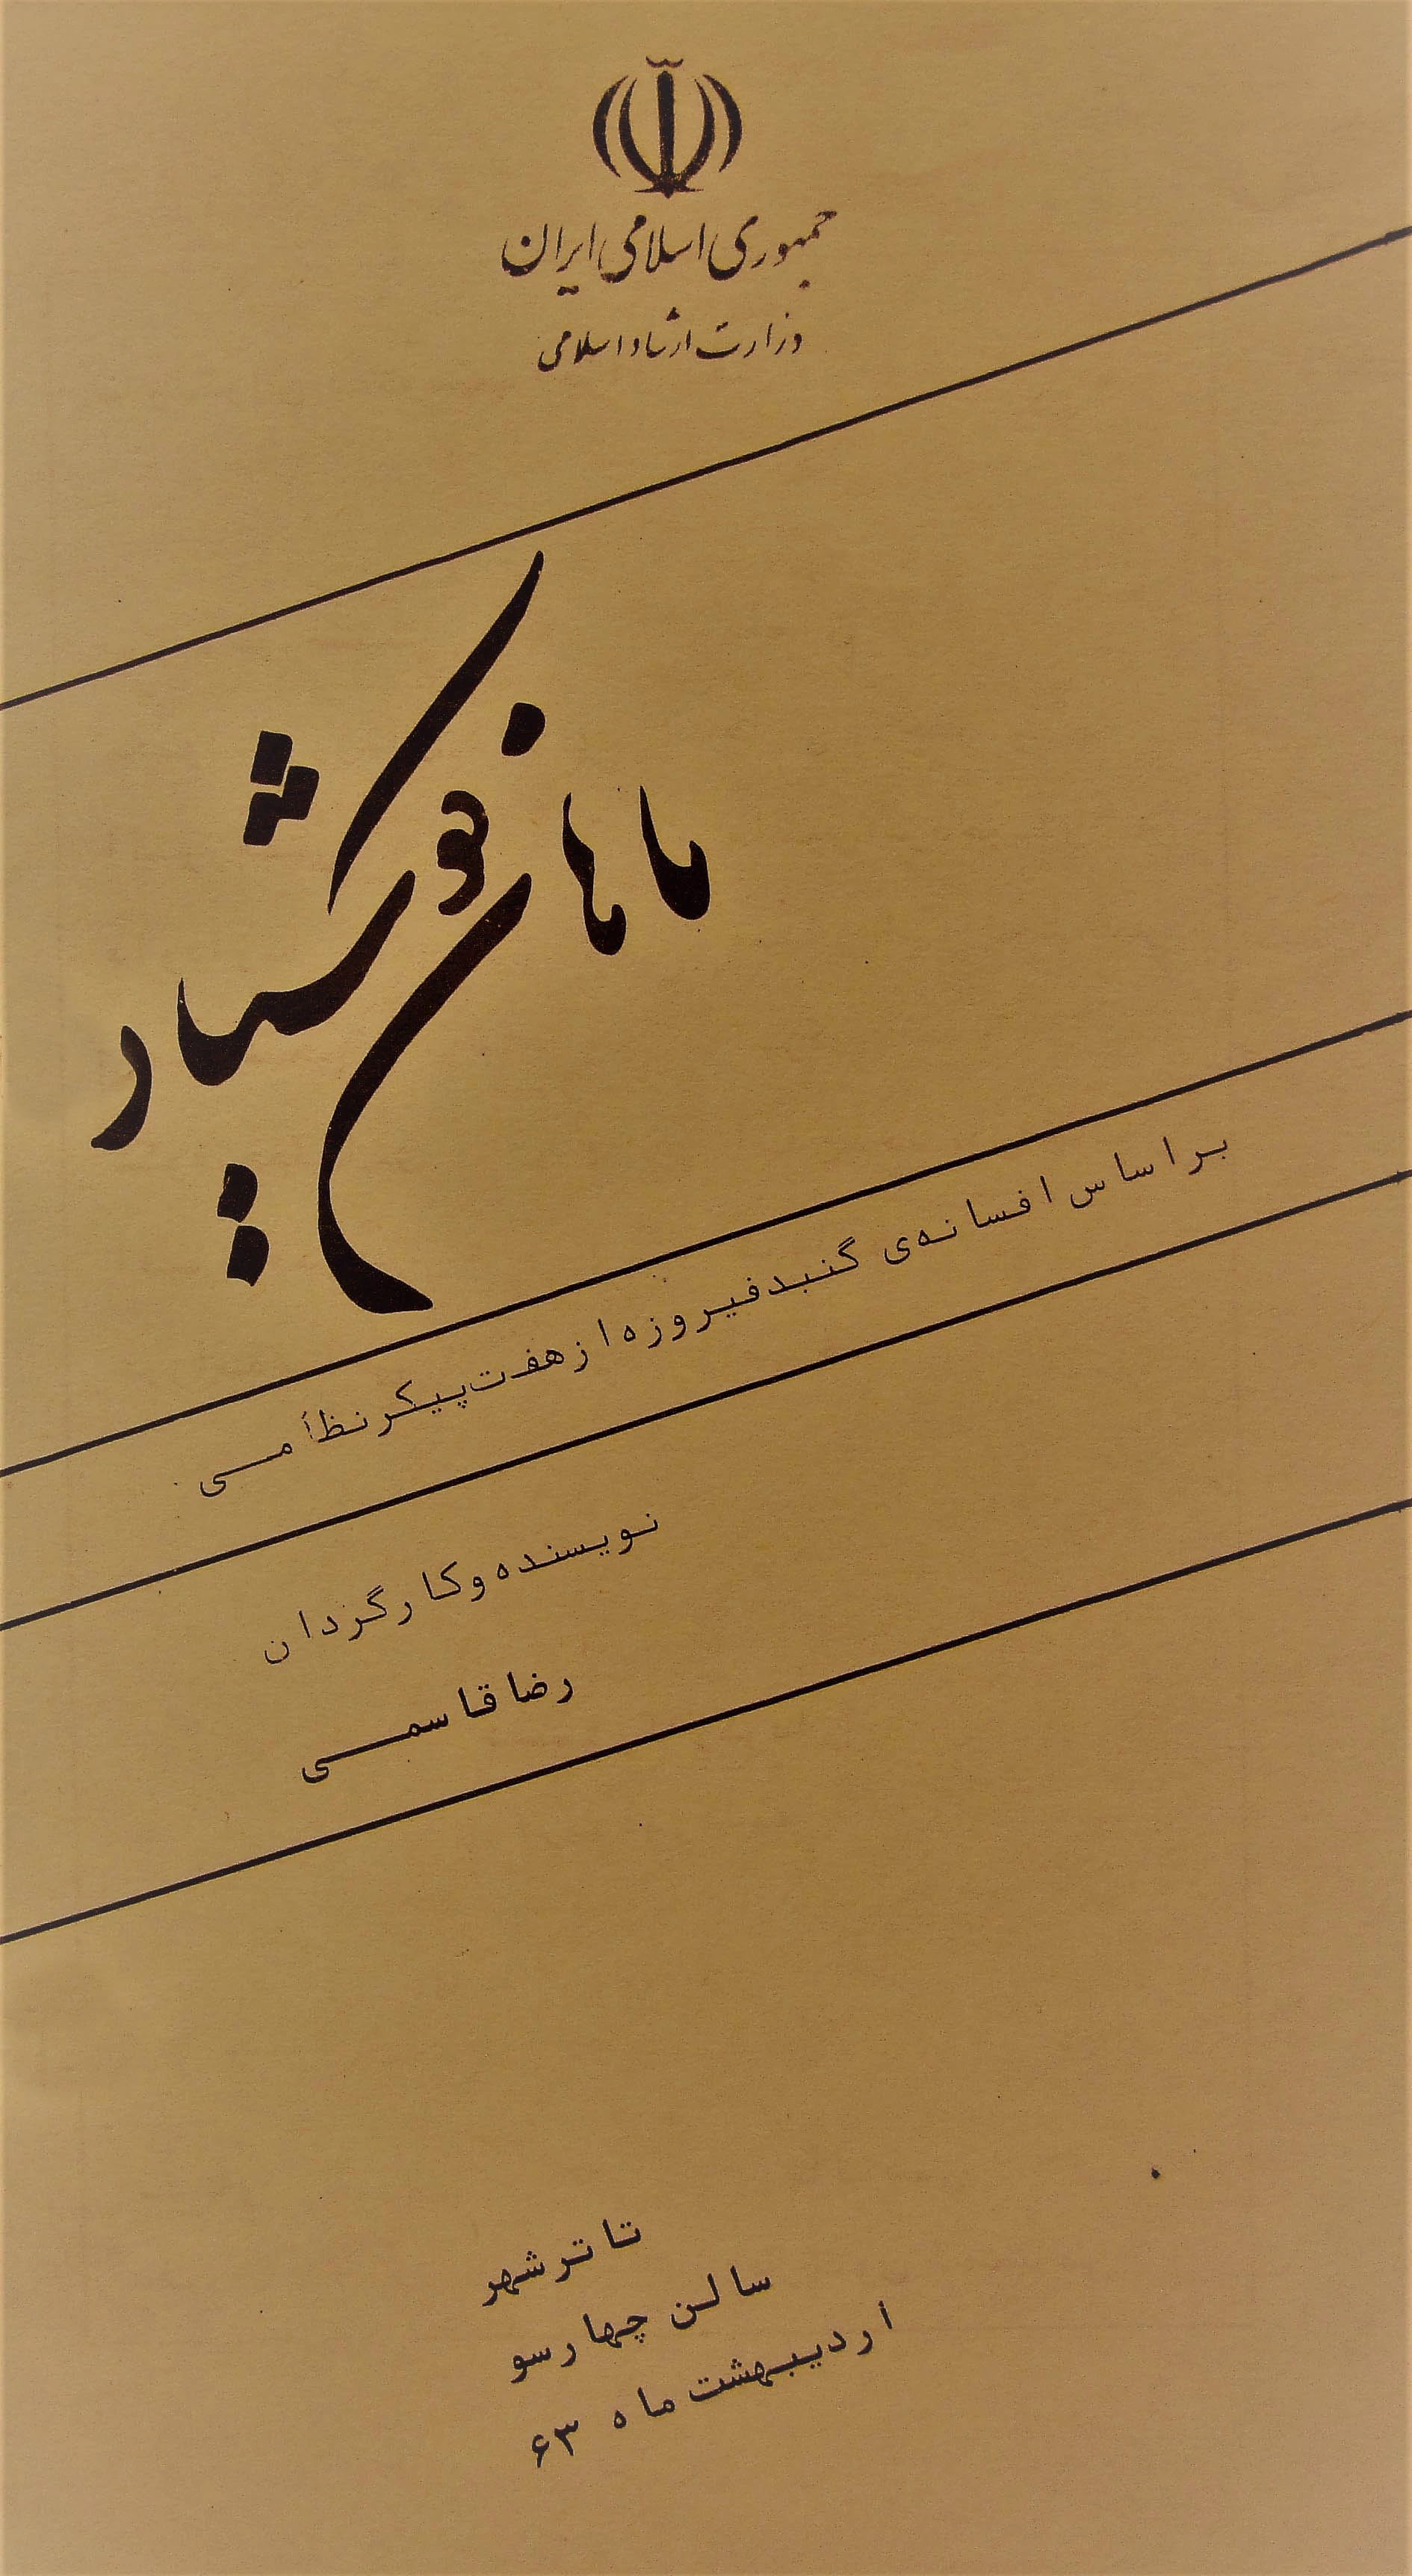 جمهوری اسلامی ایران
وزارت ارشاد اسلامی
ماهان کوشیار
بر اساس افسانه‌ی گنبد فیروزه از هفت پیکر نظامی
نویسنده و کارگردان
رضا قاسمی
تاتر شهر
سالن چهارسو
اردیبهشت ماه ۶۳